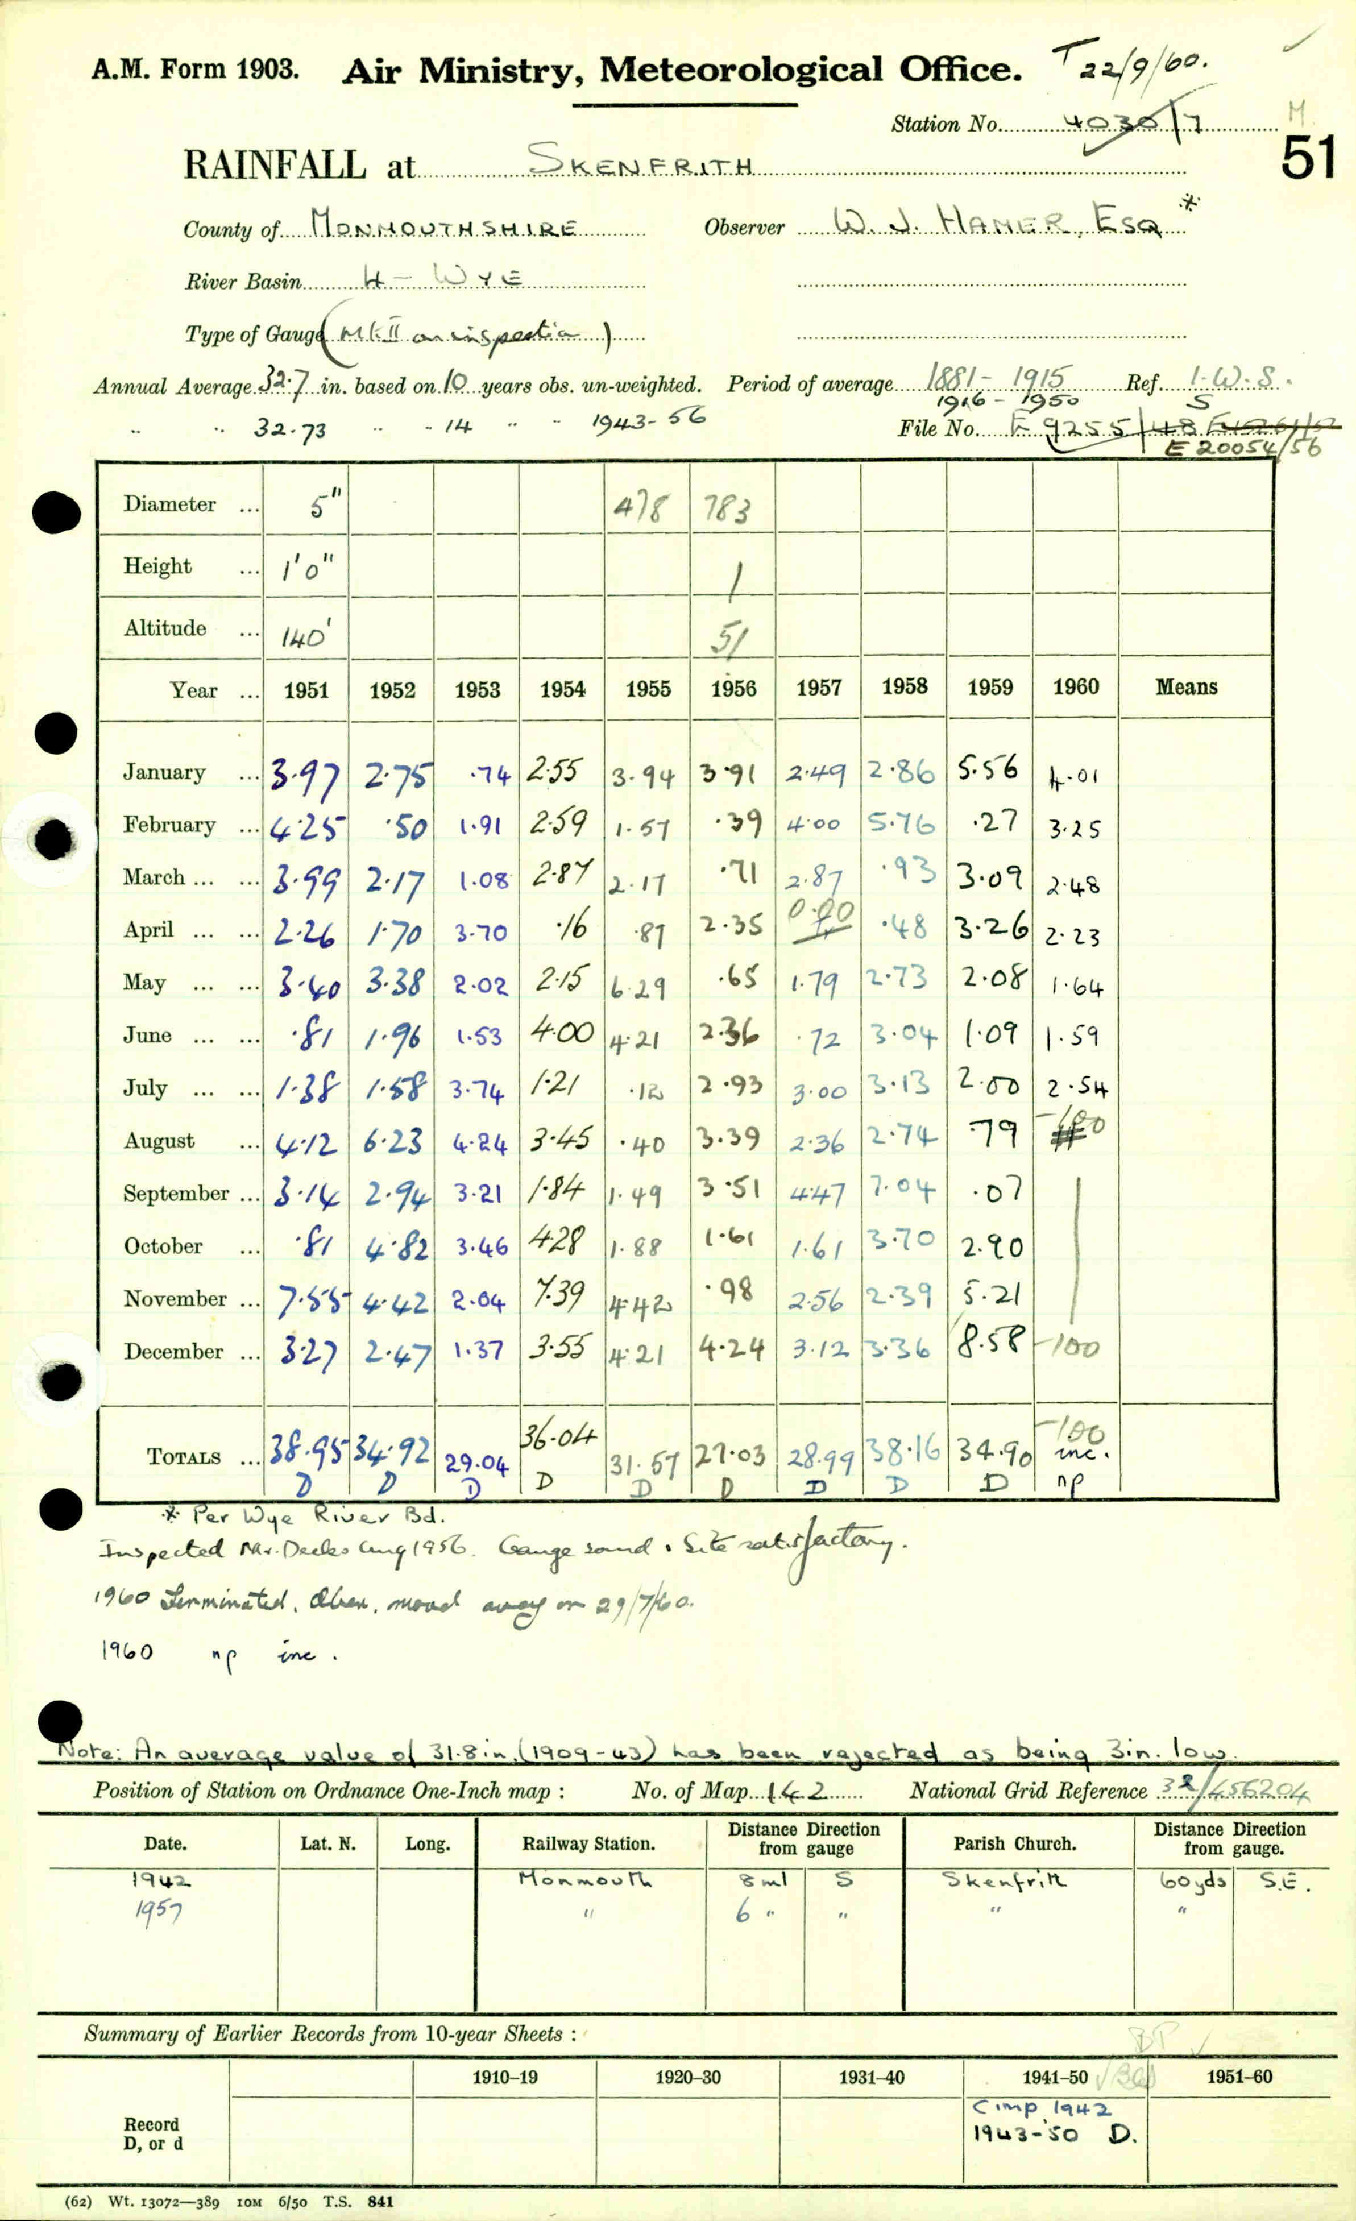 A.M. Form 1903. Air Ministry, Meteorological Office. T 22/9/60.
Station No. 4030/7 M
51
RAINFALL at SKENFRITH
County of MONMOUTHSHIRE Observer W. J. HAMER, ESQ *
River Basin 4 - WYE
Type of Gauge (Mk II on inspection)
Annual Average 32.7 in. based on 10 years obs. un-weighted. Period of average 1881 - 1915 Ref. I.W.S.
1916 - 1950 S
" " 32.73 " - 14 " " 1943-56 File No. E 9255/48
E 20054/56
Diameter ... 5" 478 783
Height ... 1'0" 1
Altitude ... 140' 51
Year ... 1951 1952 1953 1954 1955 1956 1957 1958 1959 1960 Means
January ... 3.97 2.75 .74 2.55 3.94 3.91 2.49 2.86 5.56 4.01
February ... 4.25 .50 1.91 2.59 1.57 .39 4.00 5.76 .27 3.25
March ... ... 3.99 2.17 1.08 2.87 2.17 .71 2.87 .93 3.09 2.48
April ... ... 2.26 1.70 3.70 .16 .87 2.35 0.00 .48 3.26 2.23
May ... ... 3.40 3.38 2.02 2.15 6.29 .65 1.79 2.73 2.08 1.64
June ... ... .81 1.96 1.53 4.00 4.21 2.36 .72 3.04 1.09 1.59
July ... ... 1.38 1.58 3.74 1.21 .12 2.93 3.00 3.13 2.00 2.54
August ... 4.12 6.23 4.24 3.45 .40 3.39 2.36 2.74 .79 -100
September ... 3.14 2.94 3.21 1.84 1.49 3.51 4.47 7.04 .07
October ... .81 4.82 3.46 4.28 1.88 1.61 1.61 3.70 2.90
November ... 7.55 4.42 2.04 7.39 4.42 .98 2.56 2.39 5.21
December ... 3.27 2.47 1.37 3.55 4.21 4.24 3.12 3.36 8.58 -100
-100
TOTALS ... 38.95 34.92 29.04 36.04 31.57 27.03 28.99 38.16 34.90 inc.
D D D D D D D D D np
* Per Wye River Bd.
Inspected Mr. Deeks Aug 1956. Gauge sound. Site satisfactory.
1960 Terminated. Obsr. moved away on 29/7/60.
1960 np inc.
Note: An average value of 31.8 in. (1909-43) has been rejected as being 3in. low.
Position of Station on Ordnance One-Inch map : No. of Map 142 National Grid Reference 32/456204
Date. Lat. N. Long. Railway Station. Distance from Direction gauge Parish Church. Distance from Direction gauge.
1942 Monmouth 8 ml S Skenfrith 60yds S.E.
1957 " 6 " " " "
Summary of Earlier Records from 10-year Sheets :
1910–19 1920–30 1931–40 1941–50 1951–60
Record
D, or d
Cimp 1942
1943-'50 D.
(62) Wt. 13072—389 10M 6/50 T.S. 841